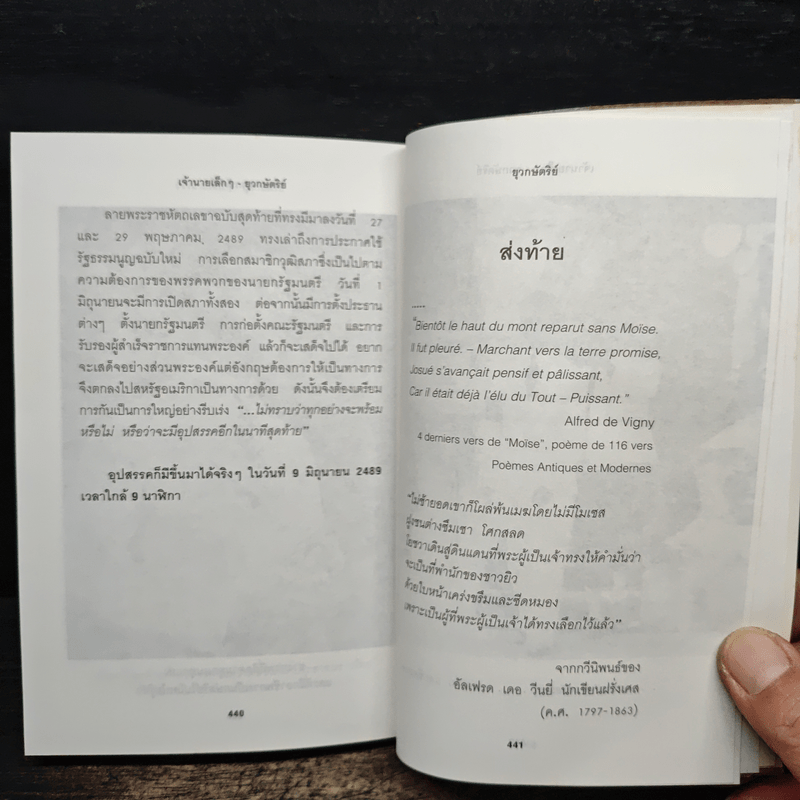 เจ้านายเล็กๆ - ยุวกษัตริย์
ลายพระราชหัตถเลขาฉบับสุดท้ายที่ทรงมีมาลงวันที่ 27
และ 29 พฤษภาคม 2489 ทรงเล่าถึงการประกาศใช้
รัฐธรรมนูญฉบับใหม่ การเลือกสมาชิกวุฒิสภาซึ่งเป็นไปตาม
ความต้องการของพรรคพวกของนายกรัฐมนตรี วันที่ 1
มิถุนายนจะมีการเปิดสภาทั้งสอง ต่อจากนั้นมีการตั้งประธาน
ต่างๆ ตั้งนายกรัฐมนตรี การก่อตั้งคณะรัฐมนตรี และการ
รับรองผู้สำเร็จราชการแทนพระองค์ แล้วก็จะเสด็จไปได้ อยาก
จะเสด็จอย่างส่วนพระองค์แต่อังกฤษต้องการให้เป็นทางการ
จึงตกลงไปสหรัฐอเมริกาเป็นทางการด้วย ดังนั้นจึงต้องเตรียม
การกันเป็นการใหญ่อย่างรีบเร่ง "...ไม่ทราบว่าทุกอย่างจะพร้อม
หรือไม่ หรือว่าจะมีอุปสรรคอีกในนาทีสุดท้าย"
อุปสรรคก็มีขึ้นมาได้จริงๆ ในวันที่ 9 มิถุนายน 2489
เวลาใกล้ 9 นาฬิกา
440
ยุวกษัตริย์
ส่งท้าย
....
"Bientôt le haut du mont reparut sans Moïse.
Il fut pleuré. – Marchant vers la terre promise,
Josué s'avançait pensif et pâlissant,
Car il était déjà l'élu du Tout – Puissant."
Alfred de Vigny
4 derniers vers de "Moïse", poème de 116 vers
Poèmes Antiques et Modernes
"ไม่ช้ายอดเขาก็โผล่พ้นเมฆโดยไม่มีโมเซส
ฝูงชนต่างซึมเซา โศกสลด
โยชวาเดินสู่ดินแดนที่พระผู้เป็นเจ้าทรงให้คำมั่นว่า
จะเป็นที่พำนักของชาวยิว
ด้วยใบหน้าเคร่งขรึมและซีดหมอง
เพราะเป็นผู้ที่พระผู้เป็นเจ้าได้ทรงเลือกไว้แล้ว"
จากกวีนิพนธ์ของ
อัลเฟรด เดอ วีนยี่ นักเขียนฝรั่งเศส
(ค.ศ. 1797-1863)
441